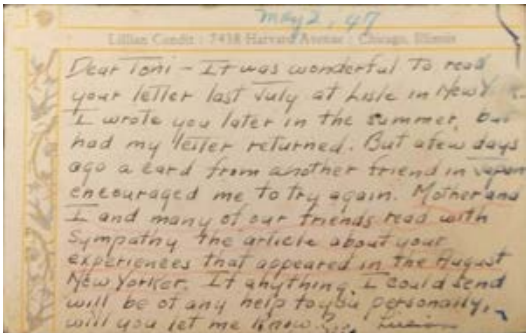 May 2, 47
Lillian Condit : 7438 Harvard Avenue : Chicago, Illinois
Dear Toni - It was wonderful to read
your letter last July at Lisle in New Y
I wrote you later in the summer, but
had my letter returned. But a few days
ago a card from another friend in Japan
encouraged me to try again. Mother and
I and many of our friends read with
Sympathy the article about your
experiences that appeared in the August
New Yorker. If anything I could send
will be of any help to you personally,
will you let me know.